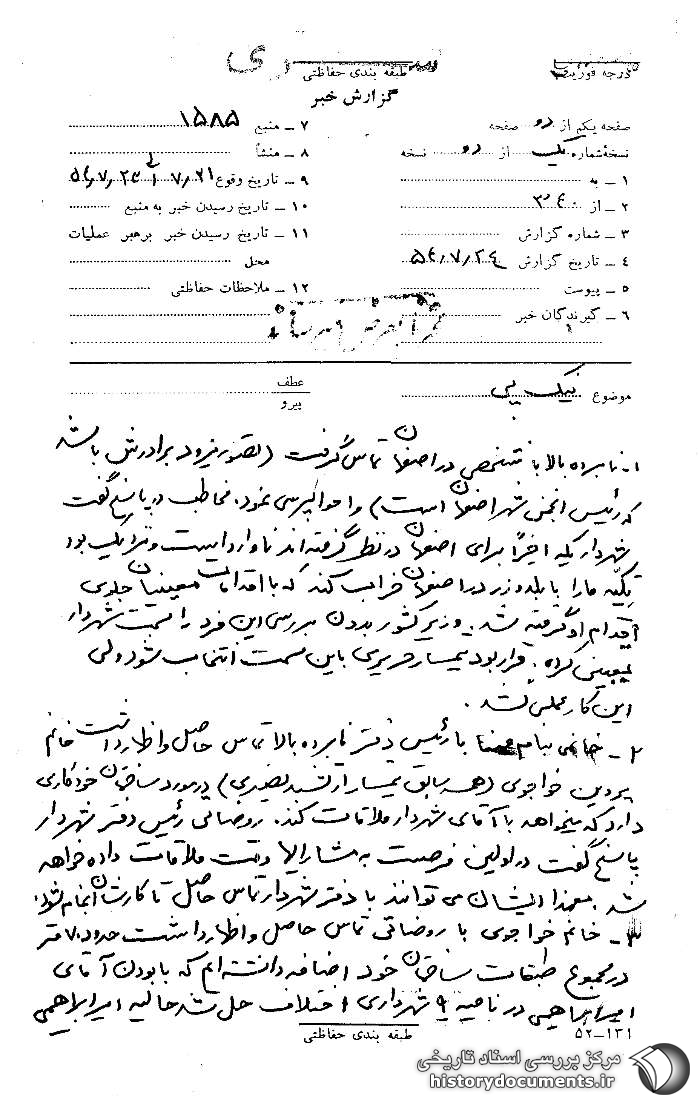 سری
درجه فوریت
طبقه بندی حفاظتی
گزارش خبر
صفحه یکم از دو صفحه
نسخه شماره یک از دو نسخه
۱ - به
۲ - از ۳۰ه۴
۳ - شماره گزارش
۴ - تاریخ گزارش ۵۴/۷/۲۴
۵ - پیوست
۶ - گیرندگان خبر
۷ - منبع ۱۵۸۵
۸ - منشأ
۹ - تاریخ وقوع ۷/۲۱ الی ۵۴/۷/۲۳
۱۰ - تاریخ رسیدن خبر به منبع
۱۱ - تاریخ رسیدن خبر برهبر عملیات
محل
۱۲ - ملاحظات حفاظتی
موضوع نیک پی
عطف
پیرو
۱- نامبرده بالا با شخصی در اصفهان تماس گرفت (تصور میرود برادرش باشد
که رئیس انجمن شهر اصفهان است) و احوالپرسی نمود. مخاطب در پاسخ گفت
شهردار یکه اخیراً برای اصفهان در نظر گرفته اند ناوارد است و نزدیک بود
تکیه ما را با بلدوزر در اصفهان خراب کند که با اقدامات معینیان جلوی
اقدام او گرفته شد. وزیر کشور بدون بررسی این فرد را بسمت شهردار
تعیین کرده. قرار بود تیمسار حریری باین سمت انتخاب شود ولی
این کار عملی نشد.
۲- خانمی بنام با رئیس دفتر نامبرده بالا تماس حاصل و اظهار داشت خانم
پروین خواجوی (همسر سابق تیمسار ارتشبد نصیری) در مورد ساختمان خود کاری
دارد که میخواهد با آقای شهردار ملاقات کند. روضاتی رئیس دفتر شهردار
پاسخ گفت در اولین فرصت به مشارالیها وقت ملاقات داده خواهد
شد. معهذا ایشان می توانند با دفتر شهردار تماس حاصل تا کارشان انجام شود.
۳- خانم خواجوی با روضاتی تماس حاصل و اظهار داشت حدود ۷۰ متر
در مجموع طبقات ساختمان خود اضافه داشته ام که با بودن آقای
امیر ابراهیمی در ناحیه ۹ شهرداری اختلاف حل شد حالیه امیر ابراهیمی
طبقه بندی حفاظتی
۵۲-۱۳۱
مرکز بررسی اسناد تاریخی
historydocuments.ir